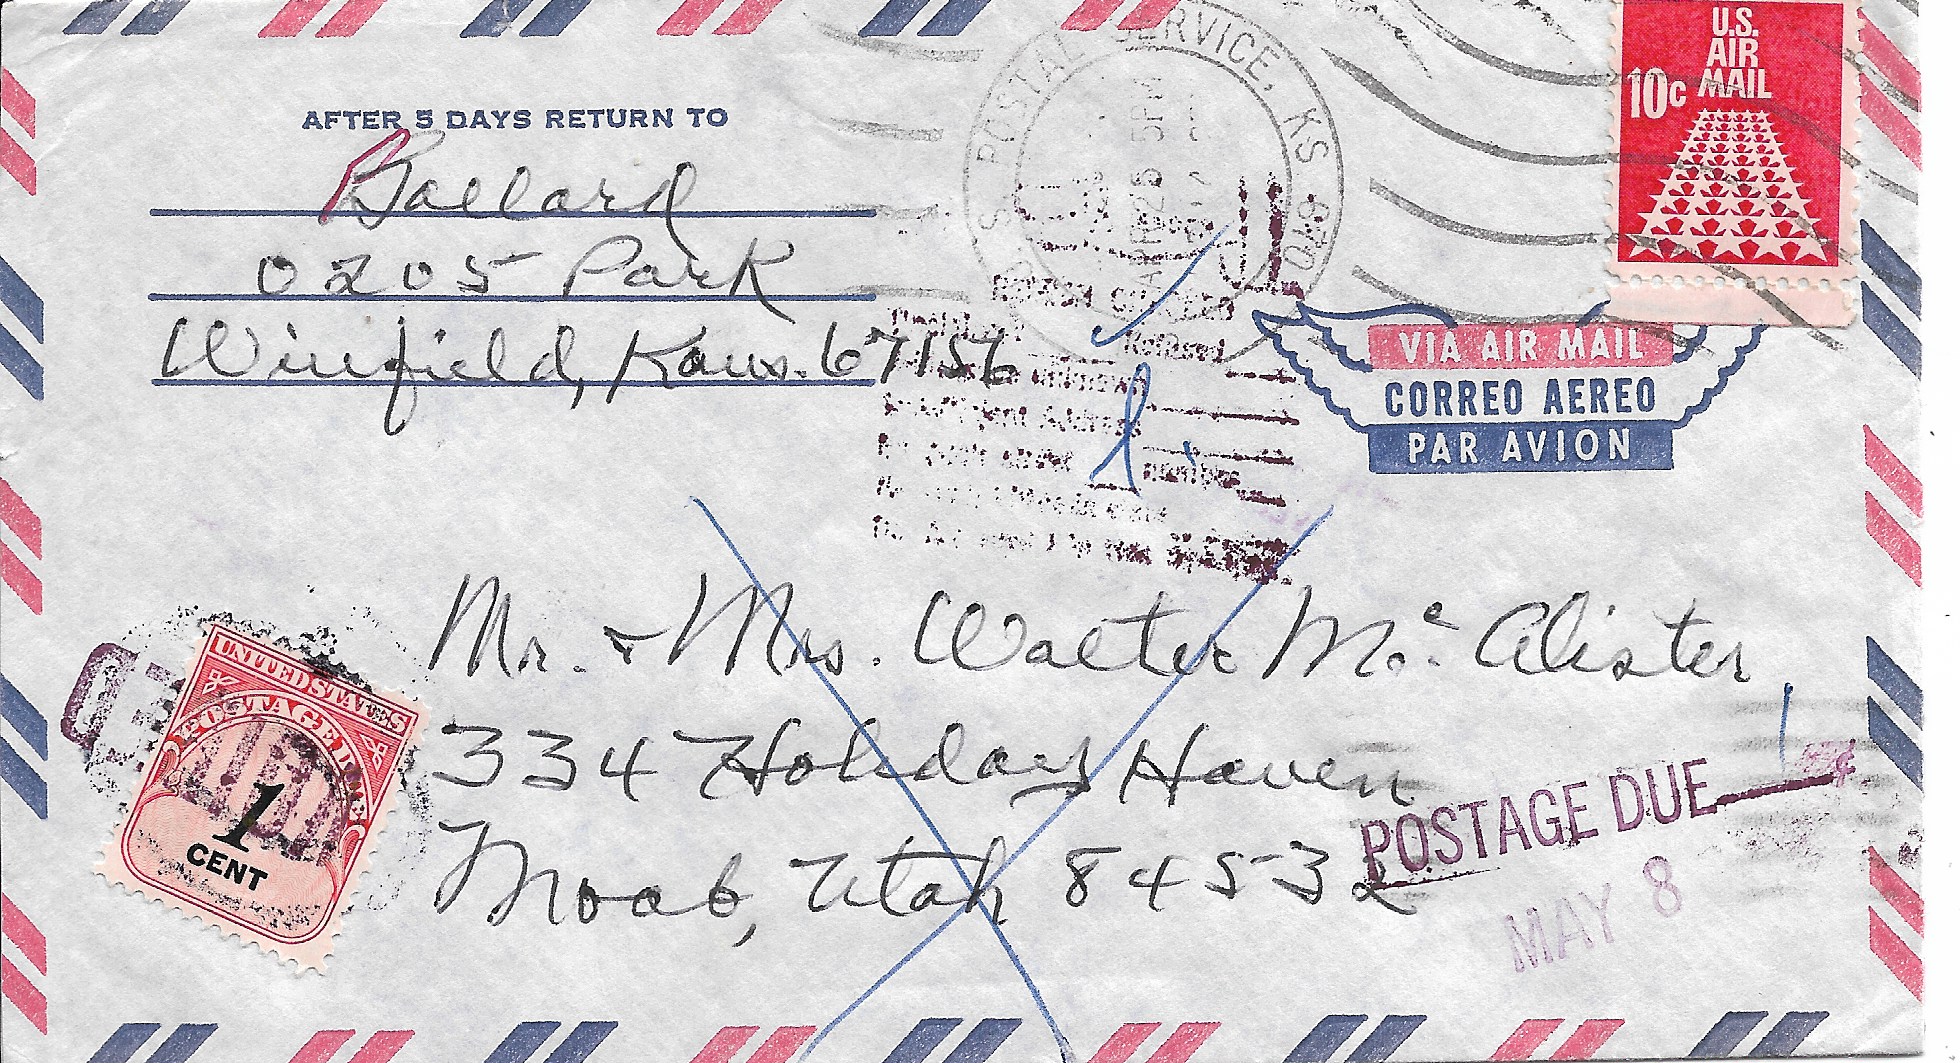 AFTER 5 DAYS RETURN TO
Ballard
0205 Park
Winfield, Kans. 67156
U.S. POSTAL SERVICE, KS 670
5PM
APR 25
U.S.
AIR
MAIL
10c
VIA AIR MAIL
CORREO AEREO
PAR AVION
Refused
Unknown
Insufficient Address
number
Mr. & Mrs. Walter Mc Alister
334 Holiday Haven
Moab, Utah 84532
UNITED STATES
POSTAGE DUE
1
CENT
POSTAGE DUE 1 ¢
MAY 8